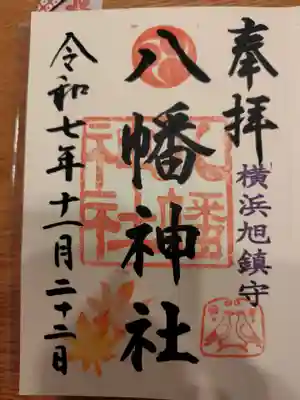 奉拝
横浜旭鎮守
八幡神社
八幡神社
令和七年十一月二十二日